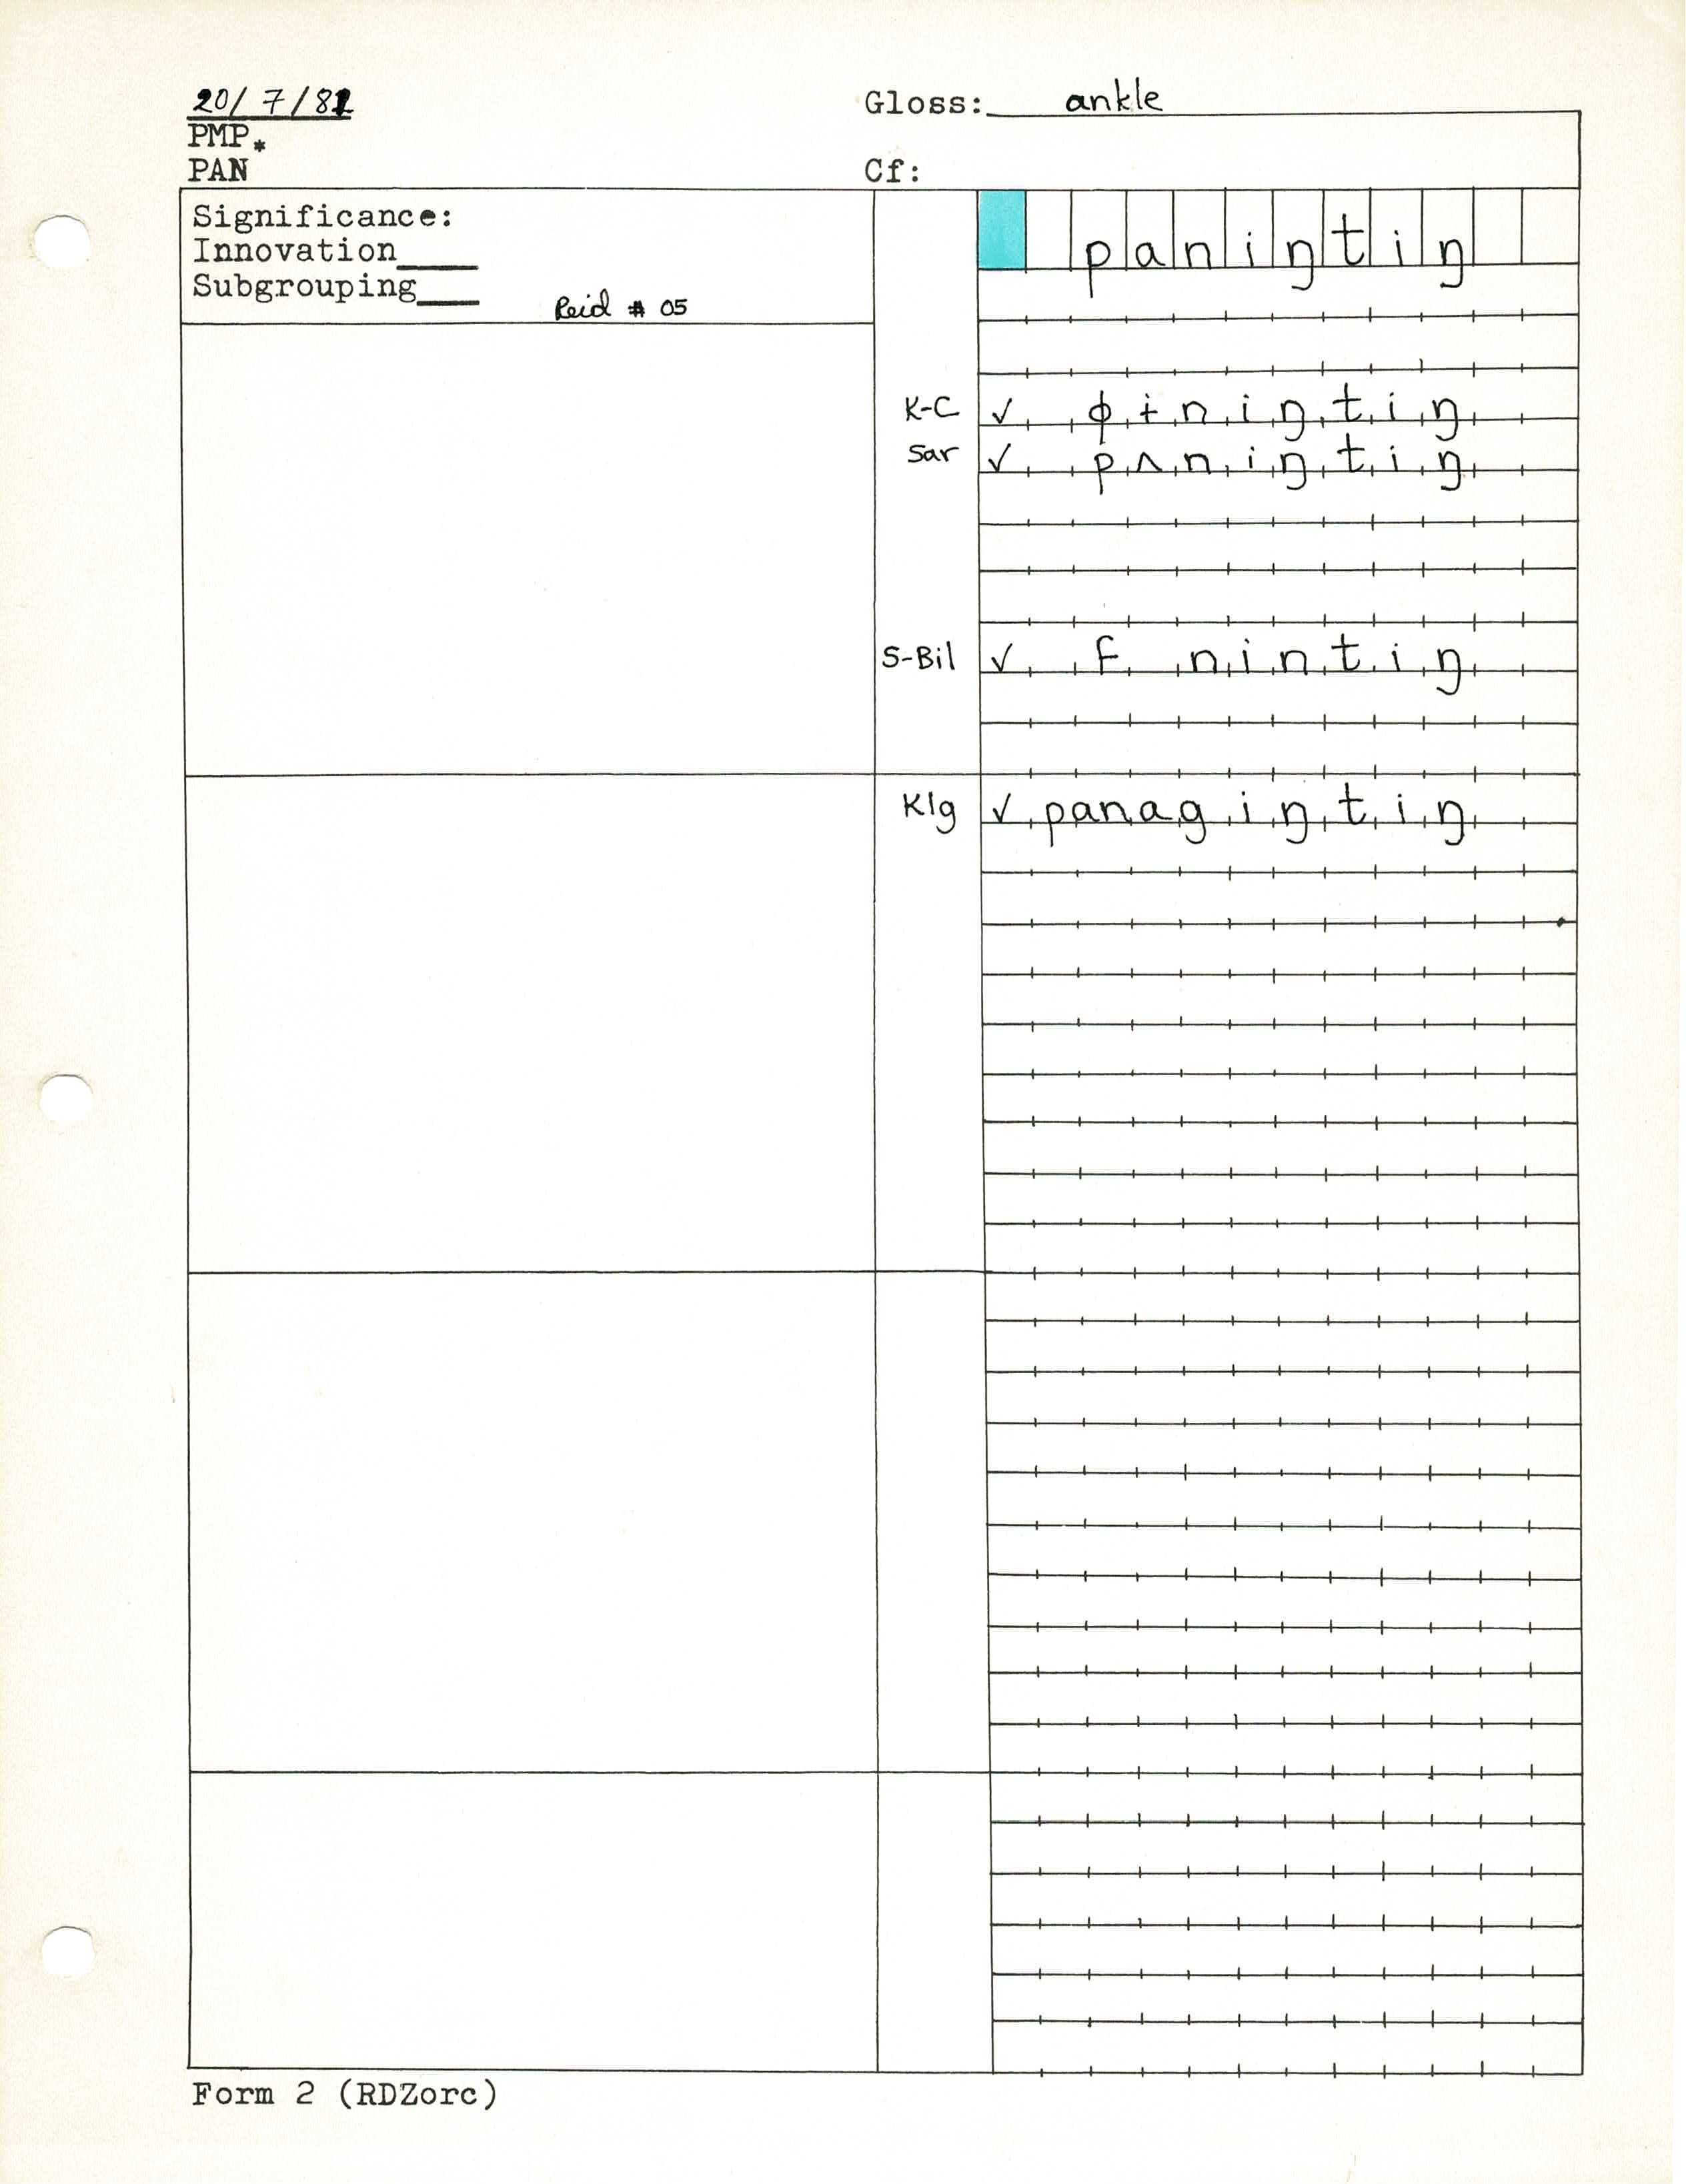 20/7/81 Gloss: ankle
PMP*
PAN Cf:
Significance:
Innovation____
Subgrouping____
Reid # 05
paniŋtiŋ
K-C ✓ ɸɨniŋtiŋ
Sar ✓ pʌniŋtiŋ
S-Bil ✓ f nintiŋ
Klg ✓ panagiŋtiŋ
Form 2 (RDZorc)